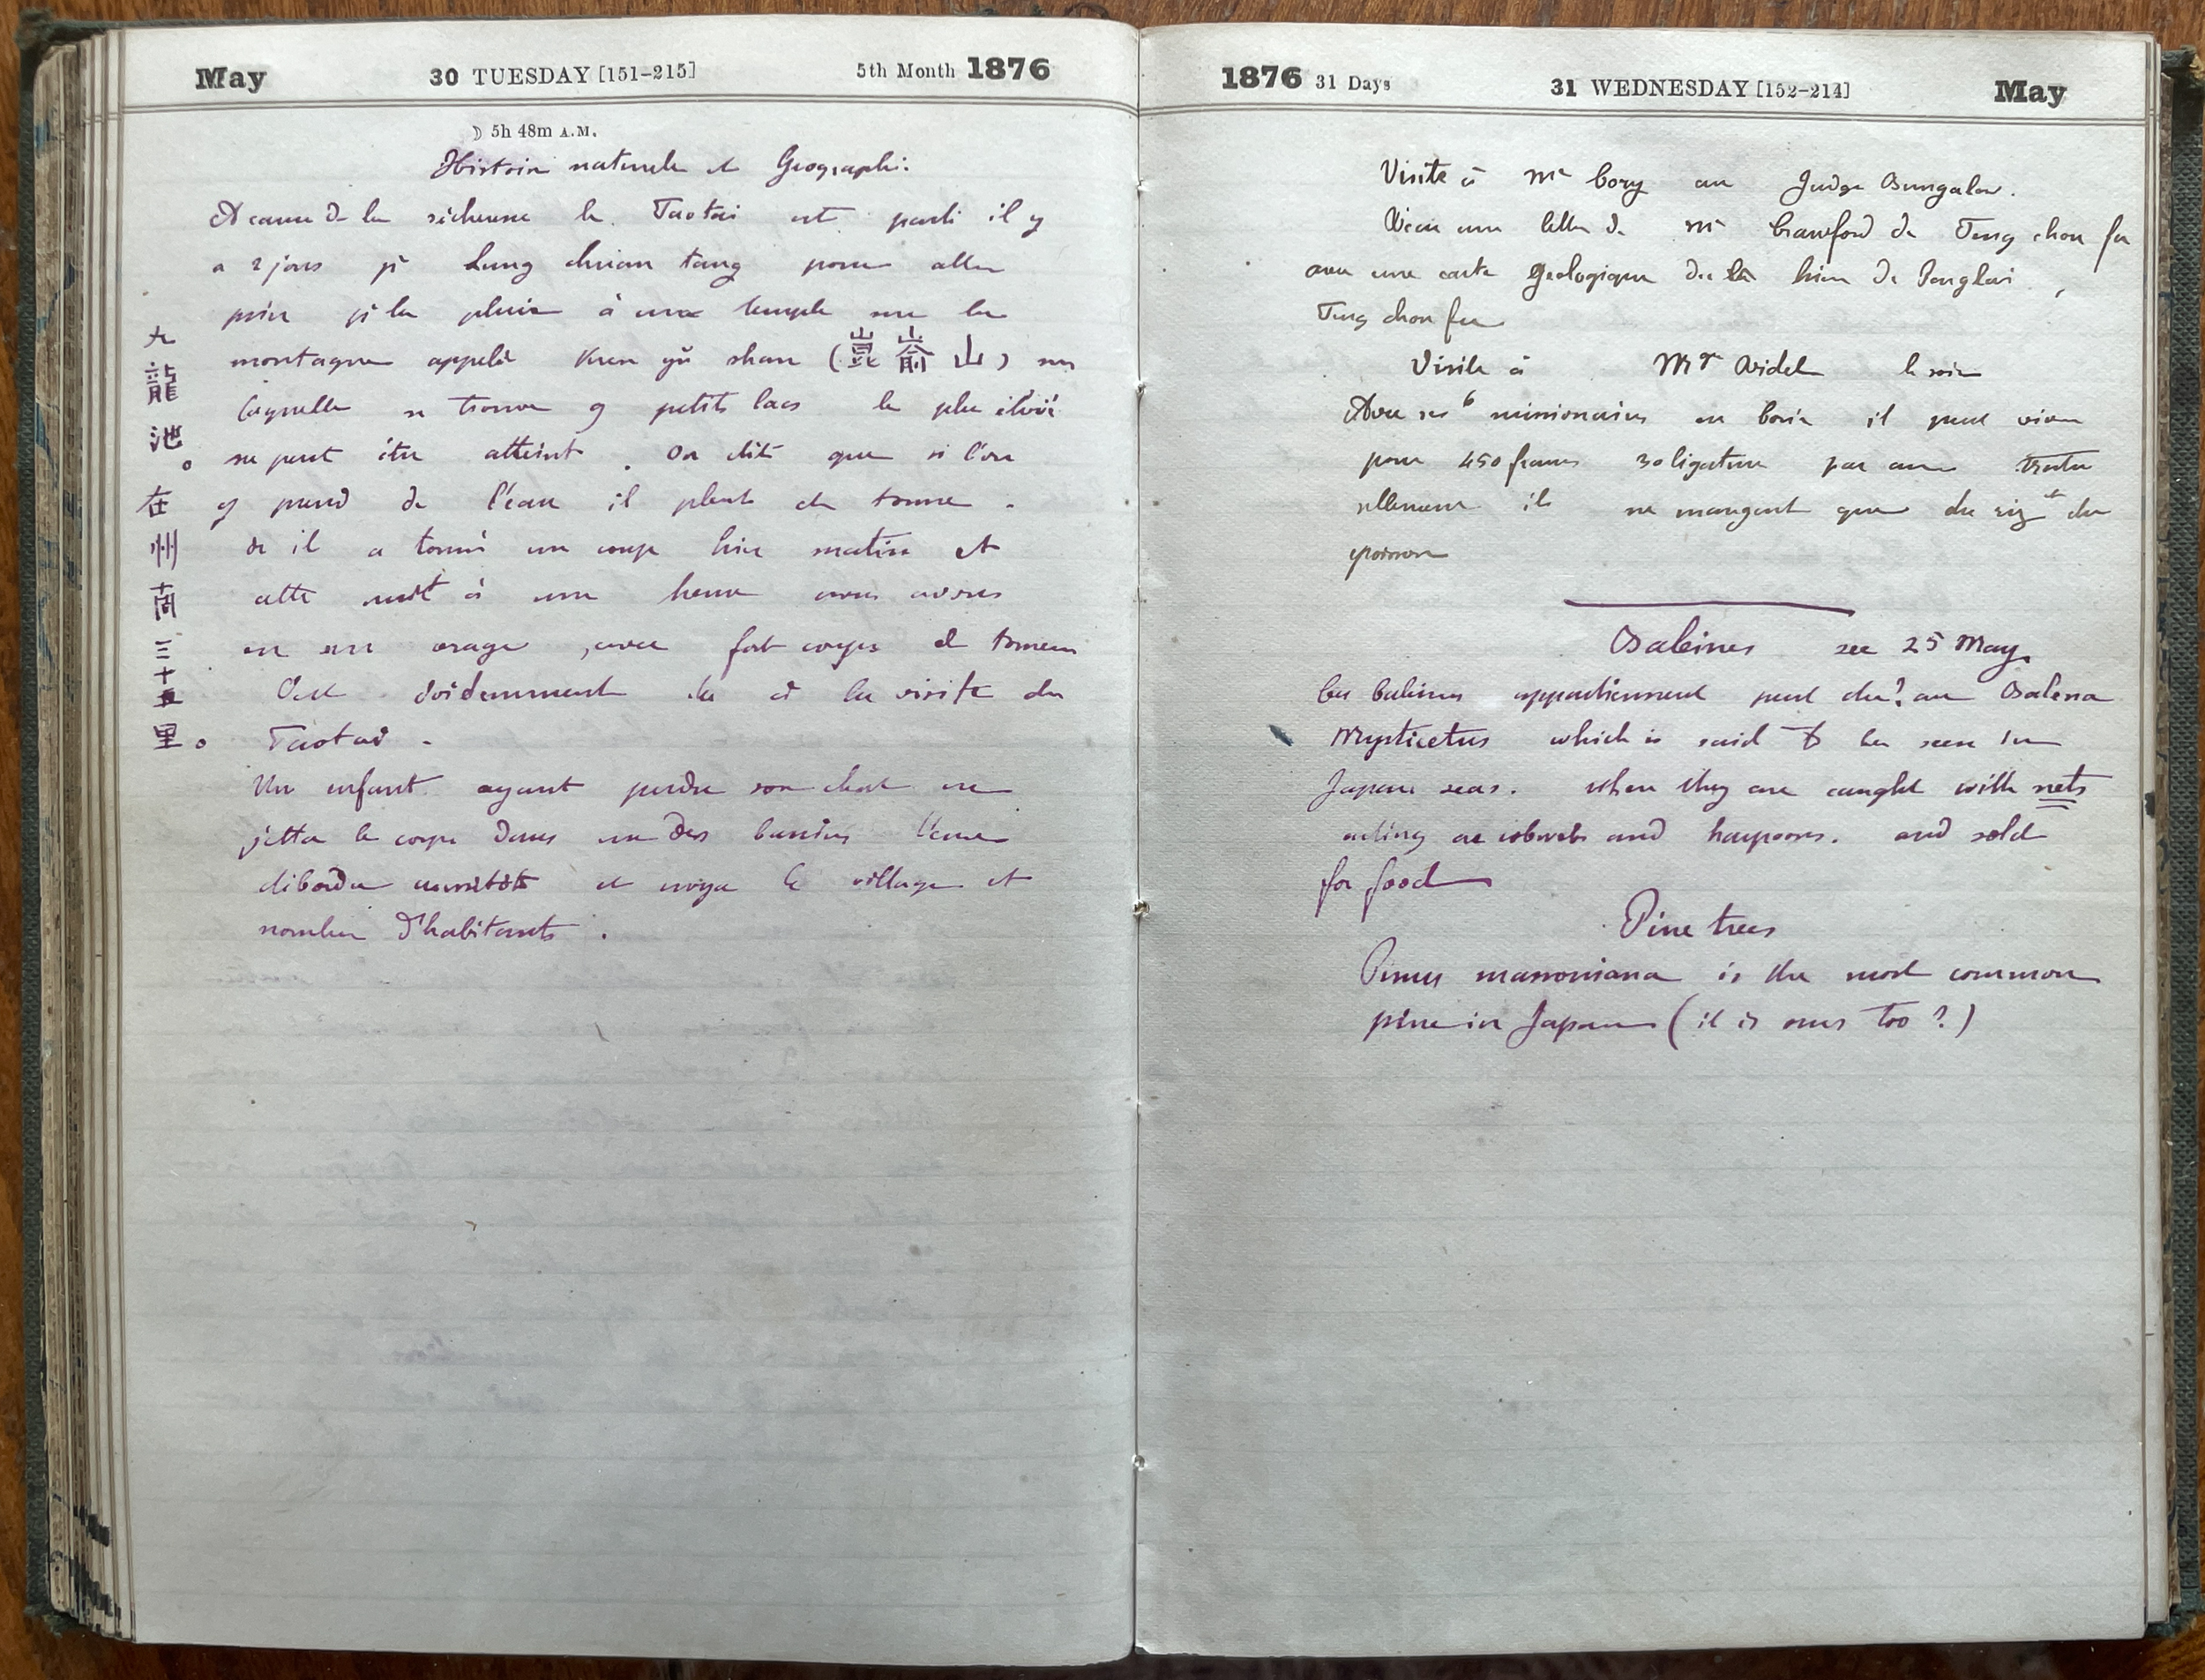 May 30 TUESDAY [151-215] 5th Month 1876
☽ 5h 48m A.M.
Histoire naturelle et Geographi:
A cause de la sécheresse le Taotai est parti il y
a 2 jours pr Lung chuan tang pour aller
prier pr la pluie à une temple sur la
montagne appelé Kun yü shan (崑嵛山) sur
laquelle se trouve 9 petits lacs le plus élevé
ne peut être atteint. On dit que si l'on
y prend de l'eau il pleut et tonne.
Or il a tonné un coup hier matin et
cette nuit à une heure nous avons
eu un orage, avec fort coups de tonnerre
C'est évidemment du à la visite du
Taotai.
Un enfant ayant perdu son chat en
jetta le corps dans un des bassins l'eau
déborda aussitôt et noya le village et
nombre d'habitants.
九龍池。在州南三十五里。
1876 31 Days 31 WEDNESDAY [152-214] May
Visite à Mr Cory au Judge Bungalow.
Reçu une lettre de Mr Crawford de Teng chou fu
avec une carte geologique du hien de Penglai,
Teng chou fu
Visite à Mgr Ridel le soir
Avec ses 6 missionaires en Corée il peut vivre
pour 450 francs 30 ligatures par an
ils ne mangent que du riz et du
poisson
Baleines see 25 May.
Les baleines appartiennent peut être? au Balena
Mysticetus which is said to be seen in
Japan seas. when they are caught with nets
acting as cobwebs and harpoons. and sold
for food
Pine trees
Pinus massoniana is the most common
pine in Japan (it is ours too?)